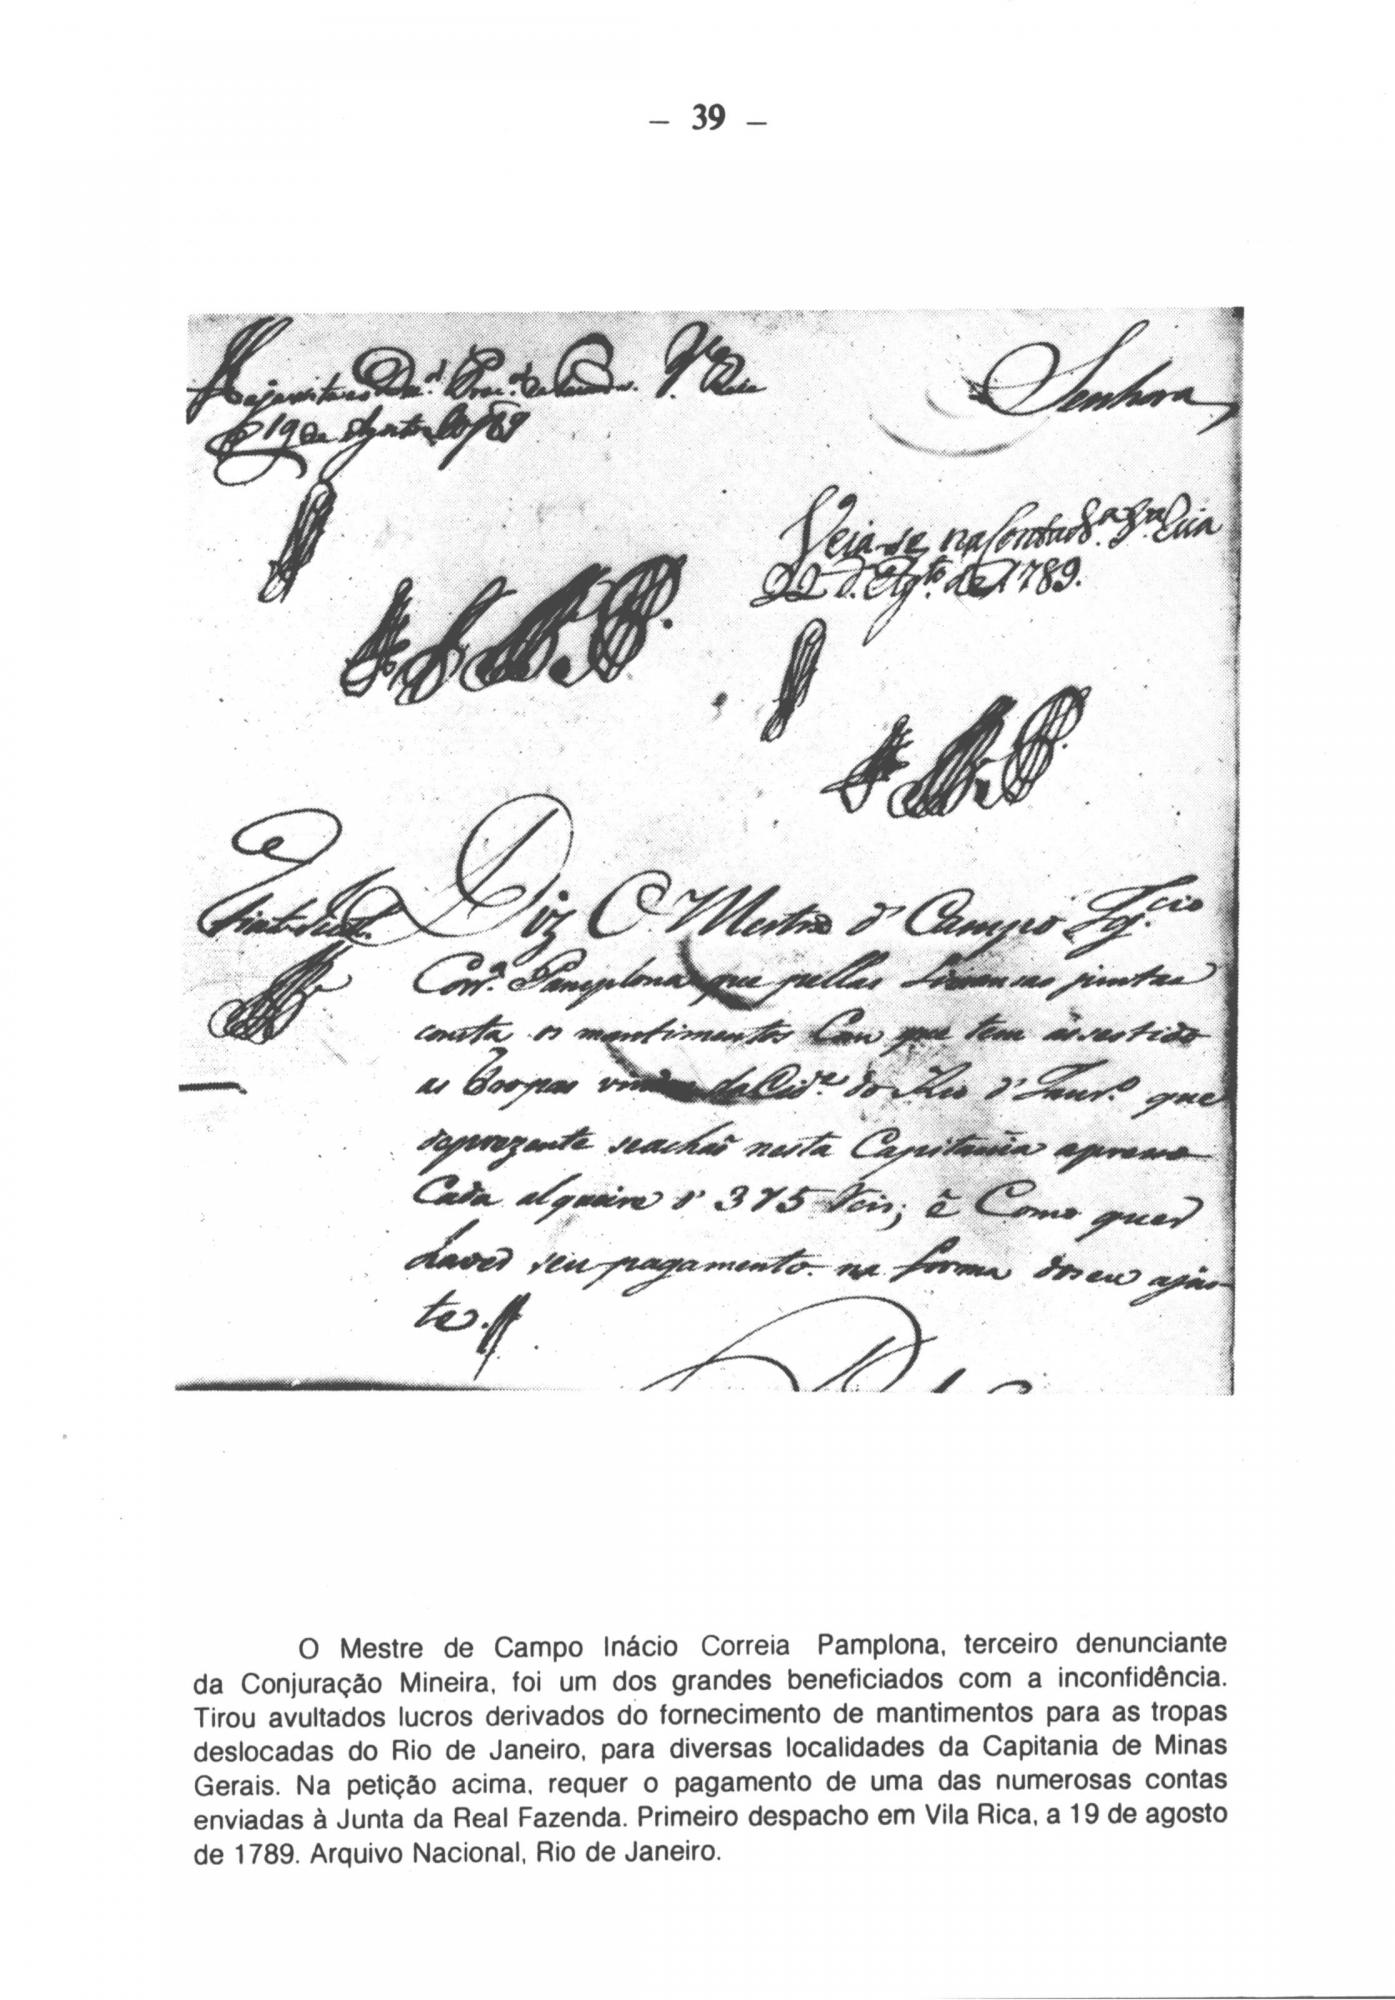 – 39 –
Senhora
19 de Agosto de 1789
Veja-se na Contad.ª V.ª Rica
22 d. Ag.to de 1789.
Diz O Mestre d' Campo Ig.cio
Corr.ª Pamplona que pellas Liransas juntas
consta os mantimentos Com que tem assestido
as Tropas vindas da Cid.e do Rio d' Janr.º que
deprezente seachaõ nesta Capitania apreso
Cada alqueire d' 375 Reis; é Como quer
haver seu pagamento na forma doseu ajus
te.
O Mestre de Campo Inácio Correia Pamplona, terceiro denunciante
da Conjuração Mineira, foi um dos grandes beneficiados com a inconfidência.
Tirou avultados lucros derivados do fornecimento de mantimentos para as tropas
deslocadas do Rio de Janeiro, para diversas localidades da Capitania de Minas
Gerais. Na petição acima, requer o pagamento de uma das numerosas contas
enviadas à Junta da Real Fazenda. Primeiro despacho em Vila Rica, a 19 de agosto
de 1789. Arquivo Nacional, Rio de Janeiro.